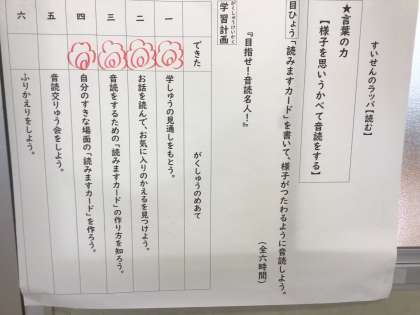 すいせんのラッパ【読む】
★言葉の力
【様子を思いうかべて音読をする】
目ひょう「読みますカード」を書いて、様子がつたわるように音読しよう。
『目指せ!音読名人!』
(全六時間)
学習計画
がくしゅうけいかく
できた
がくしゅうのめあて
一
学しゅうの見通しをもとう。
二
お話を読んで、お気に入りのかえるを見つけよう。
三
音読をするための「読みますカード」の作り方を知ろう。
四
自分のすきな場面の「読みますカード」を作ろう。
五
音読交りゅう会をしよう。
六
ふりかえりをしよう。